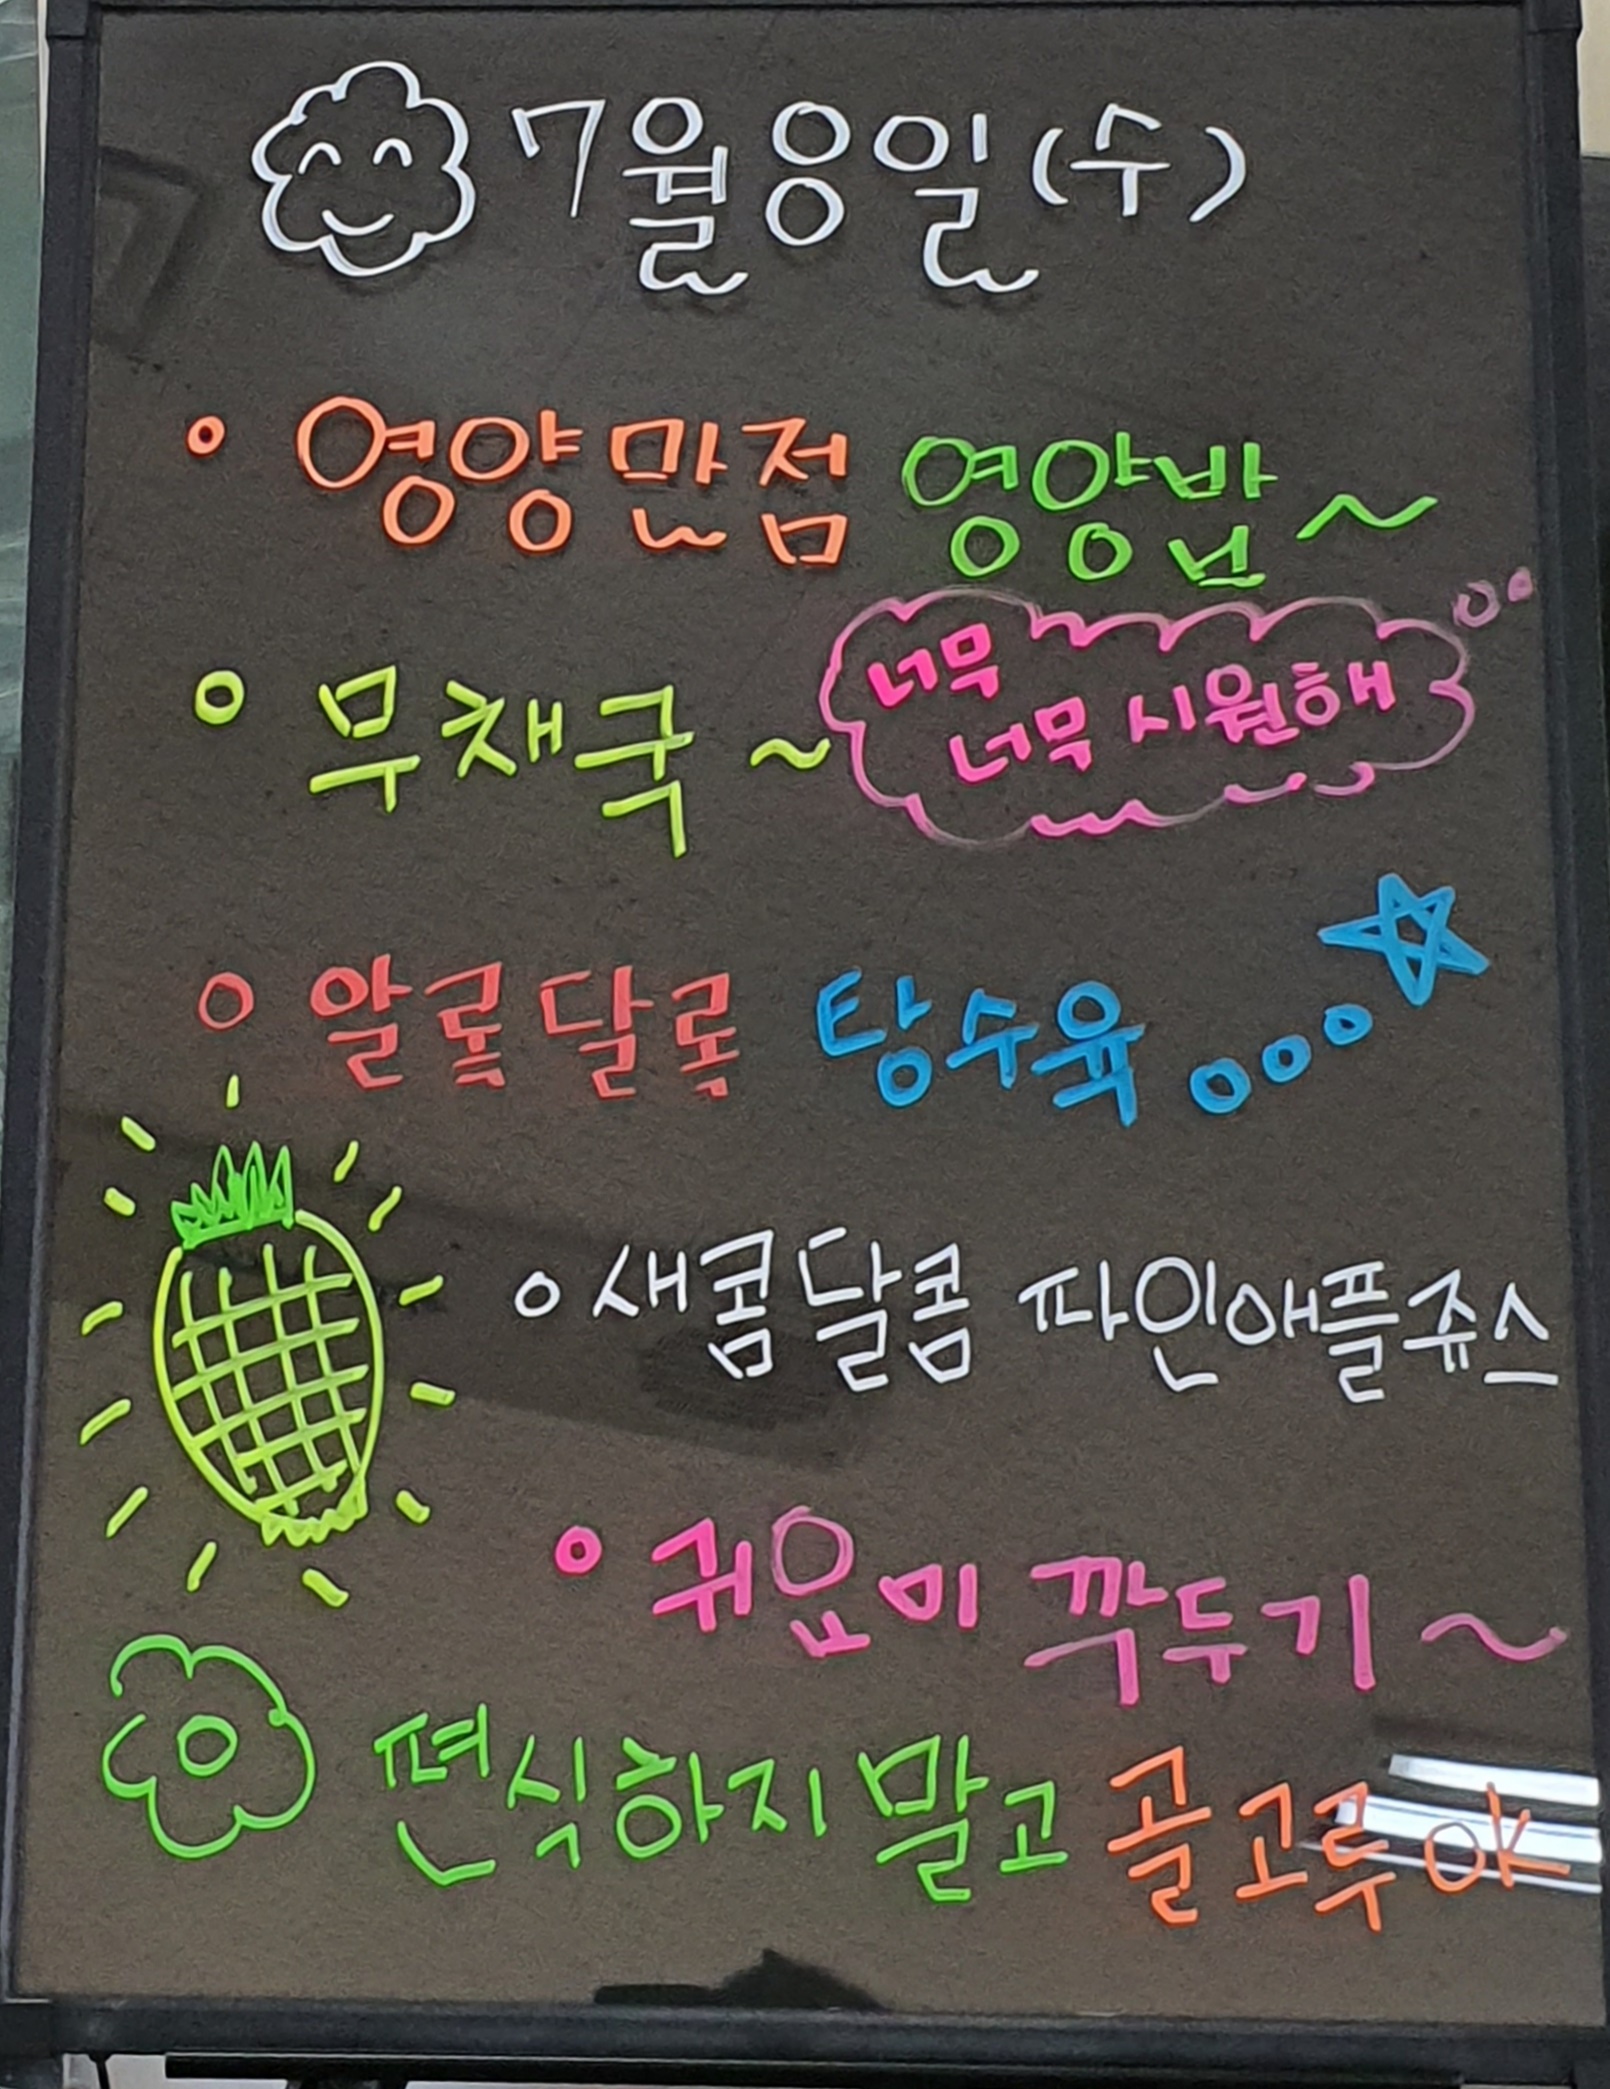 7월 8일 (수)
• 영양만점 영양밥~
• 무채국~
너무
너무 시원해
• 알록달록 탕수육...
• 새콤달콤 파인애플쥬스
• 귀요미 깍두기~
편식하지 말고 골고루 ok